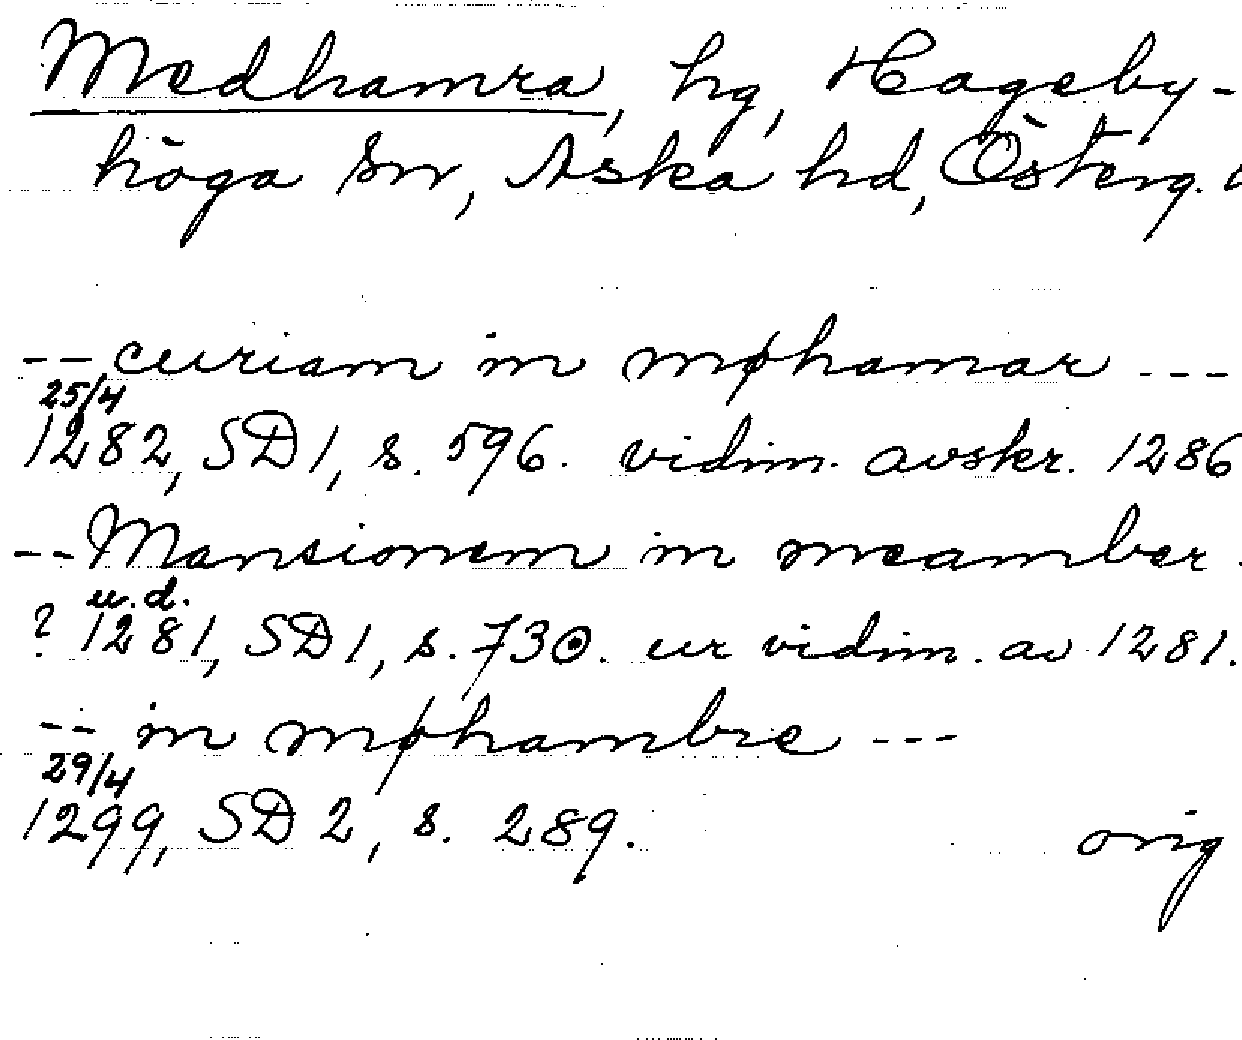 Medhamra, hg, Hageby-
höga sn, Aska hd, Österg.
-- curiam in mꝋhamar ---
25/4
1282, SD 1, s. 596. vidim. avskr. 1286
-- Mansionem in meamber
u.d.
? 1281, SD 1, s. 730. ur vidim. av 1281.
-- in mꝋhambre ---
29/4
1299, SD 2, s. 289. orig